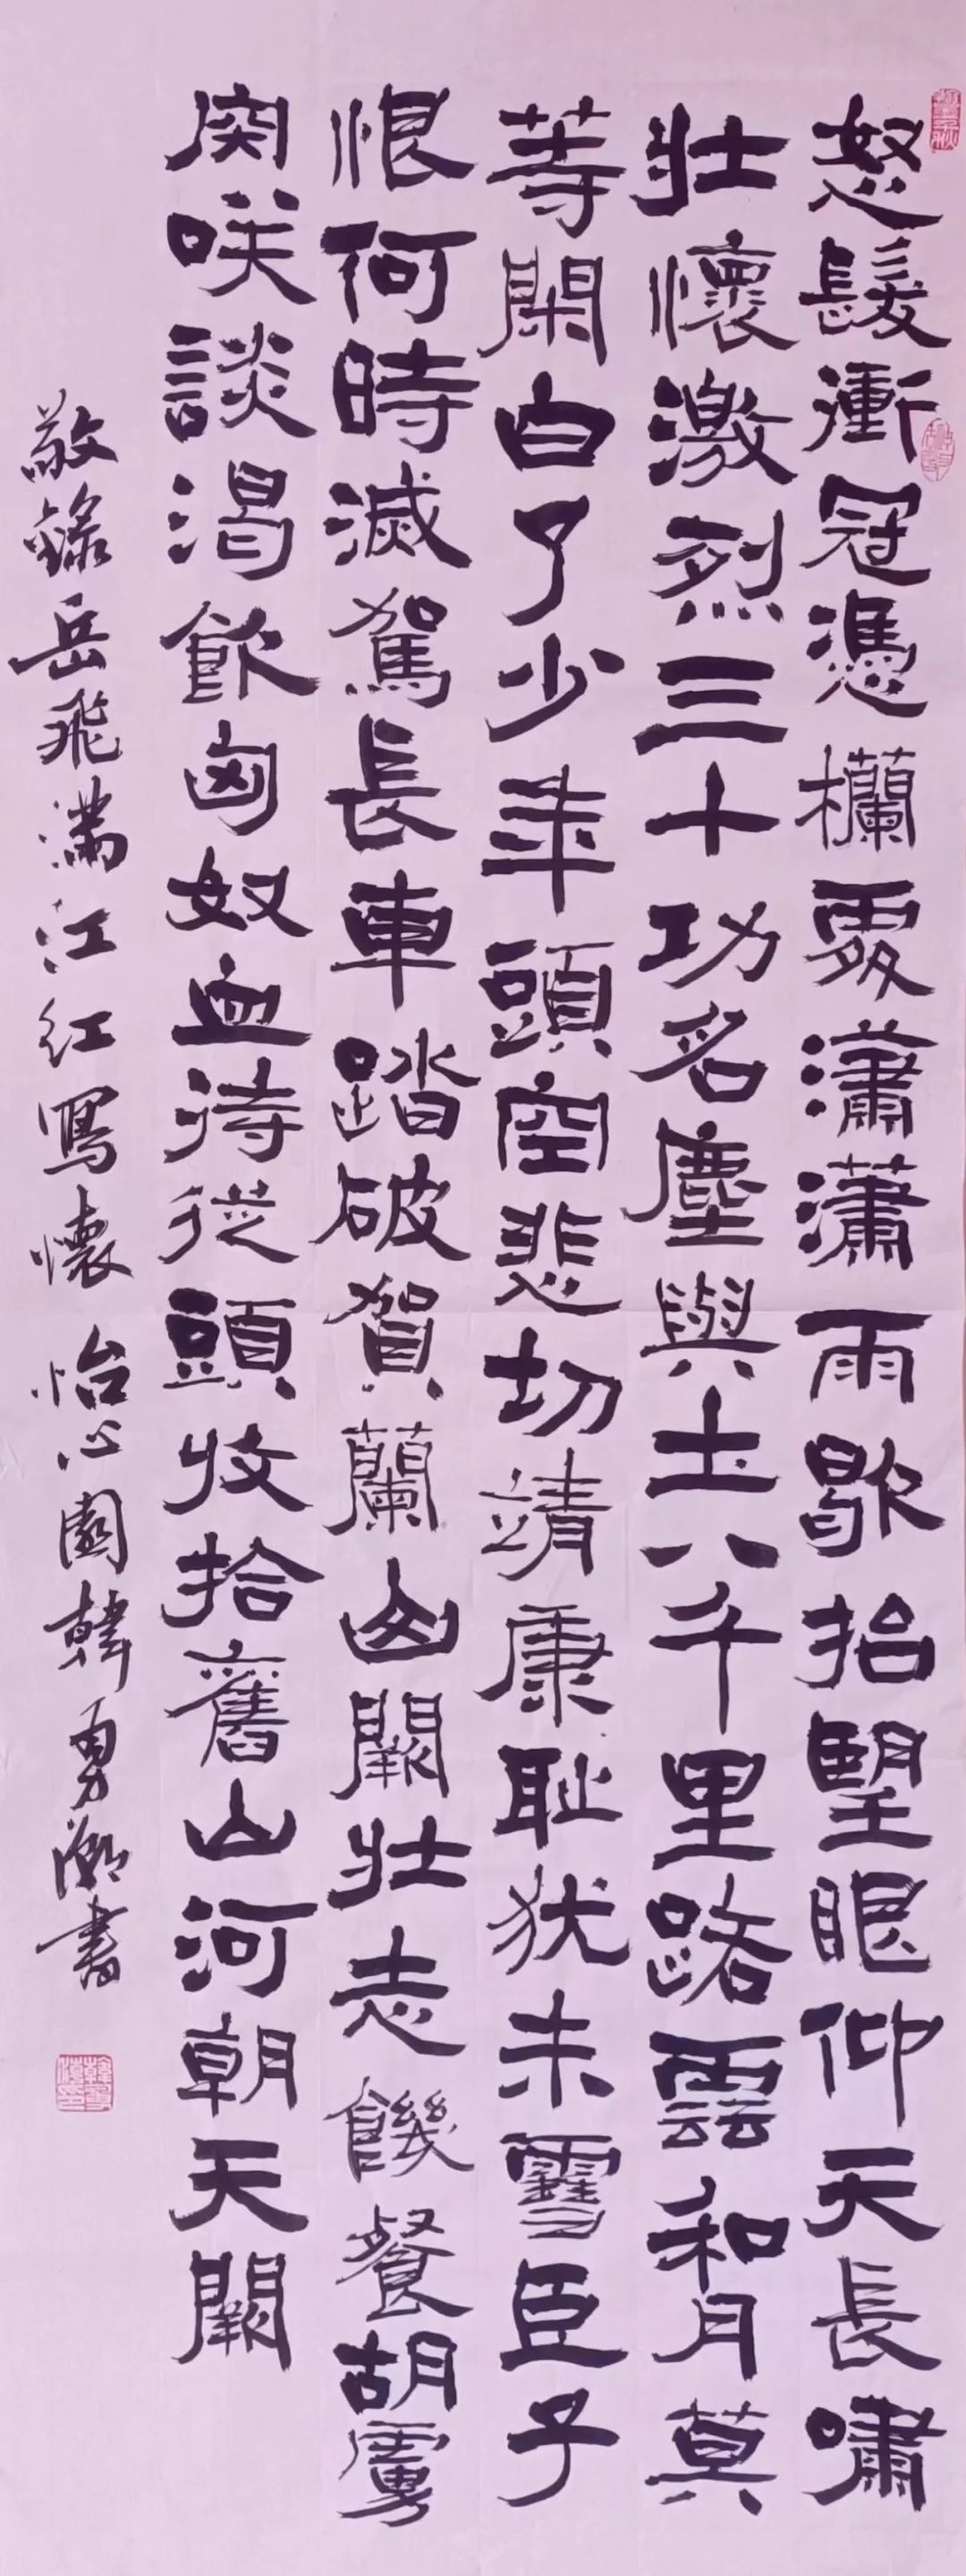 怒髮衝冠憑欄處瀟瀟雨歇抬望眼仰天長嘯
壯懷激烈三十功名塵與土八千里路雲和月莫
等閑白了少年頭空悲切靖康耻犹未雪臣子
恨何時滅駕長車踏破賀蘭山闕壯志饑餐胡虜
宍咲談渴飲匈奴血待從頭收拾舊山河朝天闕
敬錄岳飛滿江紅寫懷 怡心園韓勇書